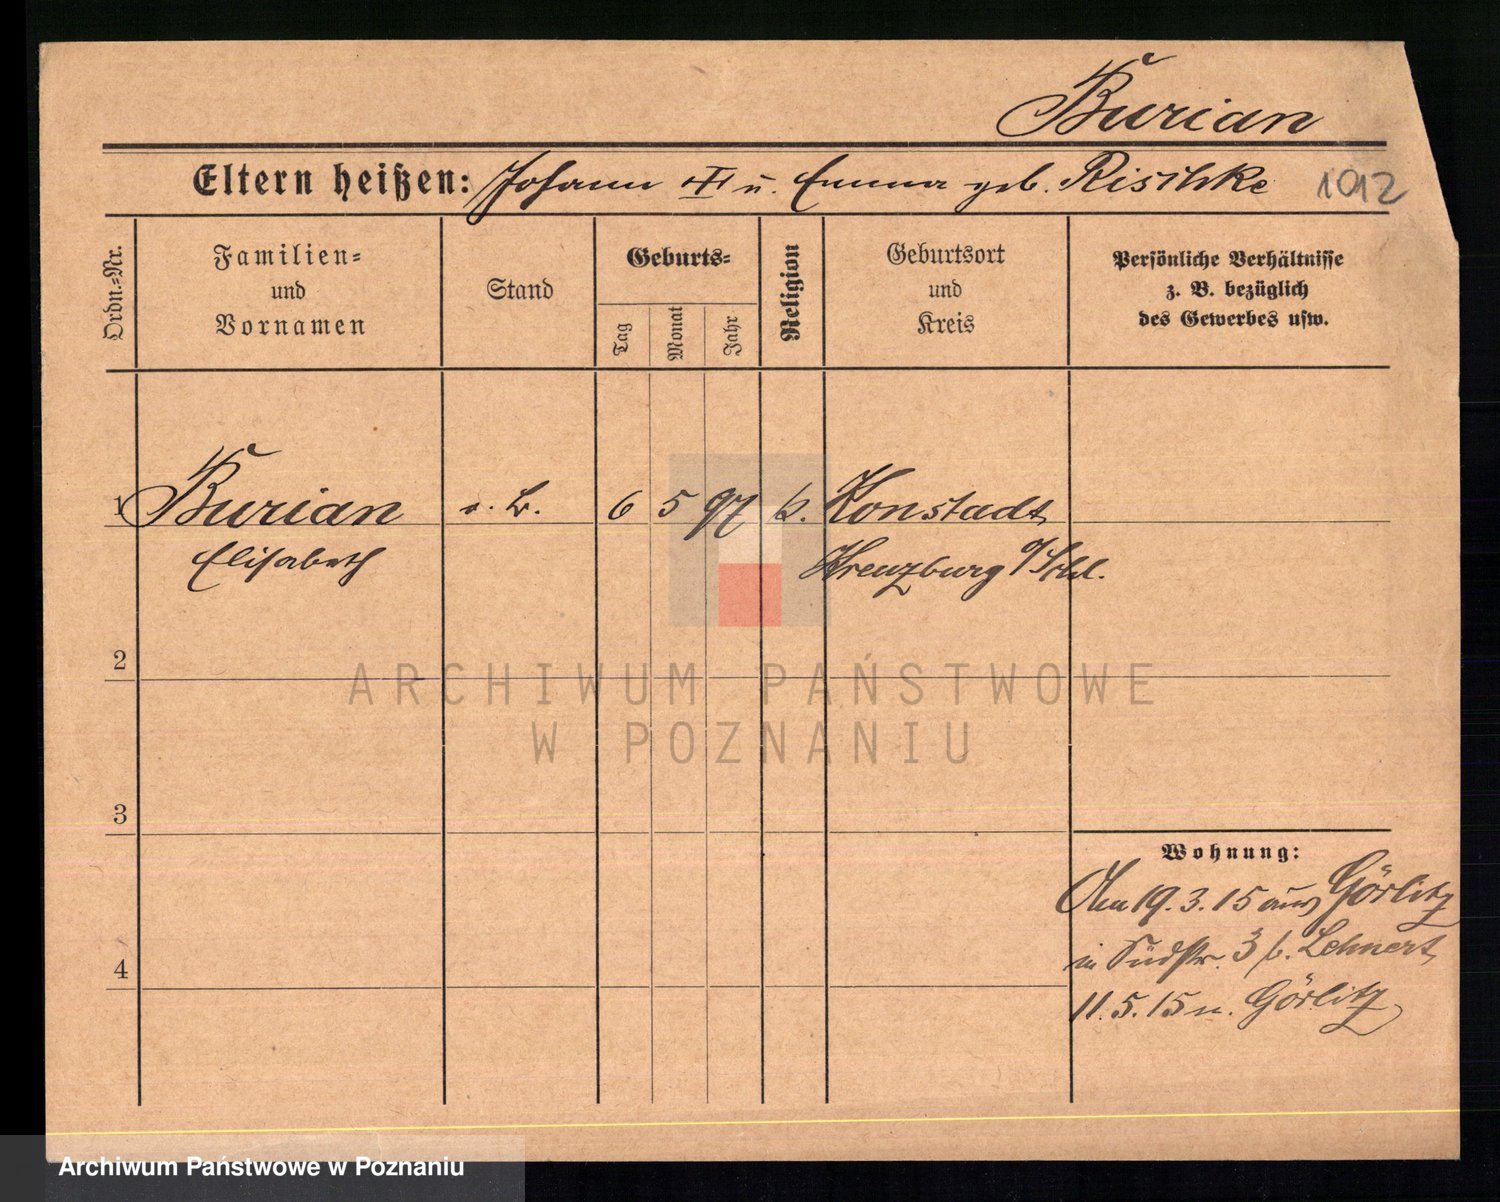 Burian
Eltern heißen: Johann u. Emma geb. Rischke 1012
Ordn.-Nr.
Familien-
und
Vornamen
Stand
Geburts-
Tag
Monat
Jahr
Religion
Geburtsort
und
Kreis
Persönliche Verhältnisse
z. B. bezüglich
des Gewerbes usw.
1 Burian o. B. 6 5 97 k. Konstadt
Elisabeth Kreuzburg o/Schl.
2
ARCHIWUM PAŃSTWOWE
W POZNANIU
3
Wohnung:
Am 19.3.15 aus Görlitz
in Südstr. 3 b. Lehnert
4
11.5.15 n. Görlitz
Archiwum Państwowe w Poznaniu